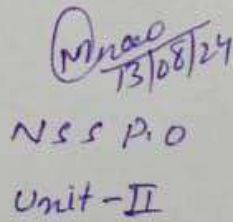 13/08/24
NSS P.O
Unit-II